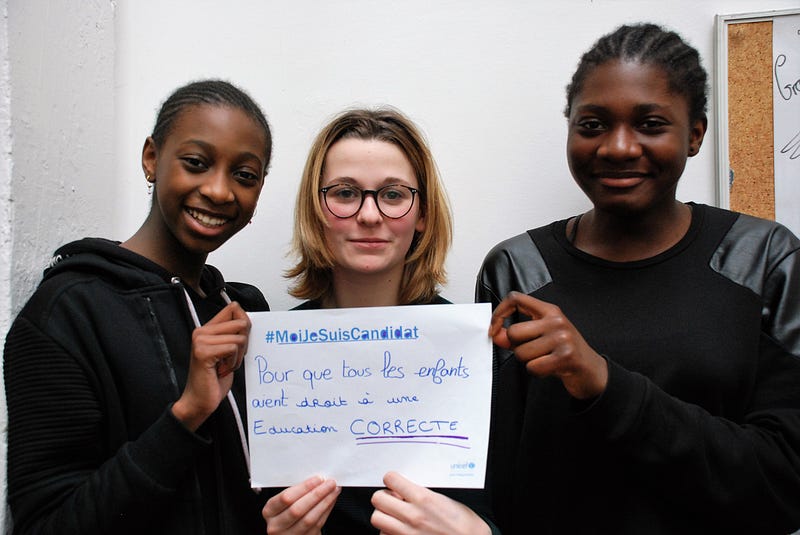 #MoiJeSuisCandidat
Pour que tous les enfants
aient droit à une
Education CORRECTE
unicef